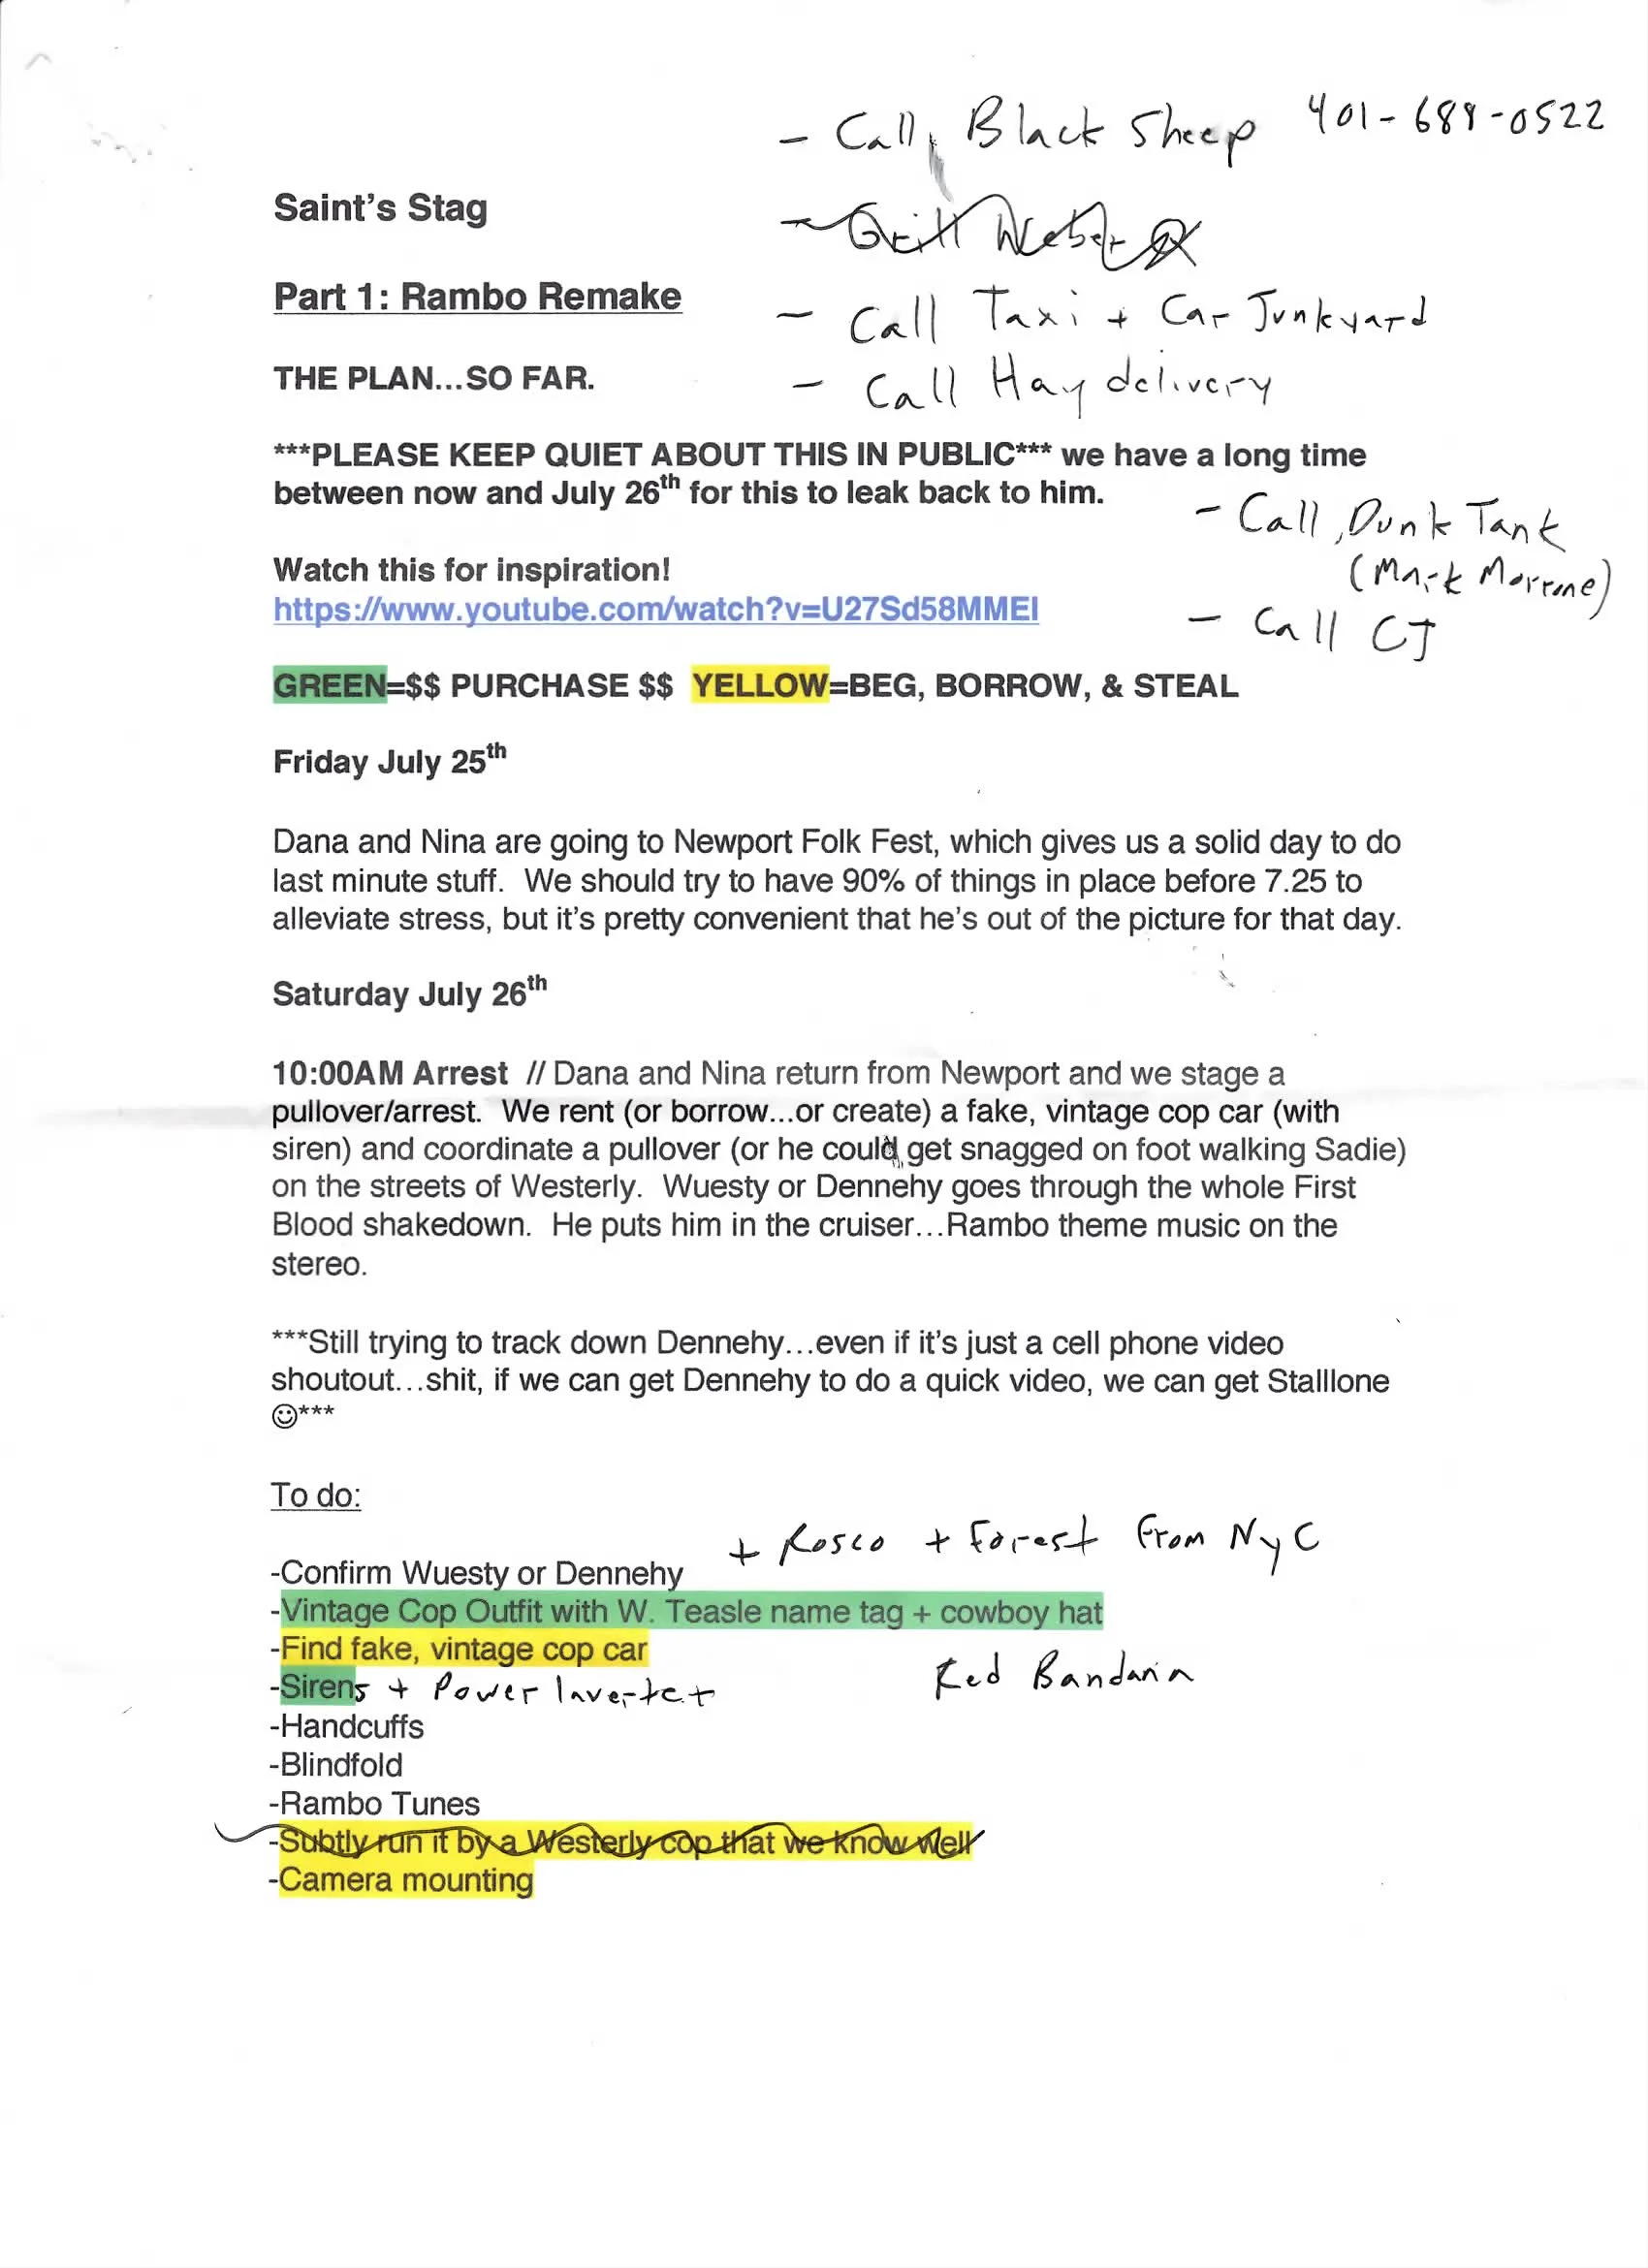 - Call, Black Sheep 401-688-0522
Saint's Stag
- Grill Weber
Part 1: Rambo Remake
- Call Taxi + Car Junkyard
THE PLAN...SO FAR.
- Call Hay delivery
***PLEASE KEEP QUIET ABOUT THIS IN PUBLIC*** we have a long time
between now and July 26th for this to leak back to him.
- Call, Dunk Tank
(Mark Morrone)
Watch this for inspiration!
https://www.youtube.com/watch?v=U27Sd58MMEI
- Call CJ
GREEN=$$ PURCHASE $$ YELLOW=BEG, BORROW, & STEAL
Friday July 25th
Dana and Nina are going to Newport Folk Fest, which gives us a solid day to do
last minute stuff. We should try to have 90% of things in place before 7.25 to
alleviate stress, but it's pretty convenient that he's out of the picture for that day.
Saturday July 26th
10:00AM Arrest // Dana and Nina return from Newport and we stage a
pullover/arrest. We rent (or borrow...or create) a fake, vintage cop car (with
siren) and coordinate a pullover (or he could get snagged on foot walking Sadie)
on the streets of Westerly. Wuesty or Dennehy goes through the whole First
Blood shakedown. He puts him in the cruiser...Rambo theme music on the
stereo.
***Still trying to track down Dennehy...even if it's just a cell phone video
shoutout...shit, if we can get Dennehy to do a quick video, we can get Stalllone
☺***
To do:
-Confirm Wuesty or Dennehy + Rosco + Forest From NYC
-Vintage Cop Outfit with W. Teasle name tag + cowboy hat
-Find fake, vintage cop car
-Sirens + Power Inverter
Red Bandana
-Handcuffs
-Blindfold
-Rambo Tunes
-Subtly run it by a Westerly cop that we know well
-Camera mounting